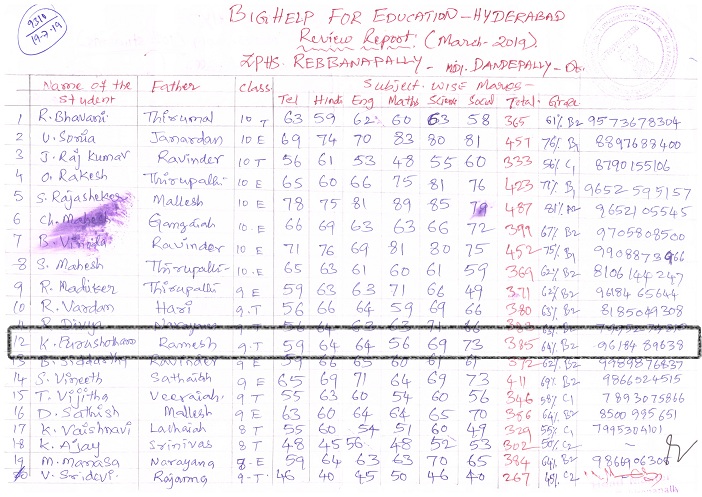 9310
19-7-19
BIGHELP FOR EDUCATION - HYDERABAD
Review Report. (March-2019).
ZPHS. REBBANAPALLY - MDL. DANDEPALLY -
Name of the Student Father class Subject wise Marks -
Tel Hindi Eng Maths Science Social Total Grade
1 R. Bhavani Thirumal 10 T 63 59 62 60 63 58 365 61% B2 9573678304
2 V. Sonia Janardan 10 E 69 74 70 83 80 81 457 76% B1 8897688400
3 J. Raj Kumar Ravinder 10 T 56 61 53 48 55 60 333 56% C1 8790155106
4 O. Rakesh Thirupathi 10 E 65 60 66 75 81 76 423 71% B1 9652595157
5 S. Rajashekar Mallesh 10 E 78 75 81 89 85 79 487 81% A2 9652105545
6 Ch. Mahesh Gangaiah 10 E 66 69 63 63 66 72 399 67% B2 9705808500
7 B. Ravinder 10 E 71 76 69 81 80 75 452 75% B1
8 S. Mahesh Thirupathi - 10.E 65 63 61 60 61 59 369 62% B2 8106144247
9 R. Thirupathi 9 E 59 63 63 71 66 49 371 62% B2 9618465644
10 R. Vardan Hari 9.T 56 66 64 59 69 66 380 63% B2 8185049308
11 R. Divya Narayana 9.T 56 64 63 63 71 66
12 K. Purushotham Ramesh 9.T 59 64 64 56 69 73 385 64% B2 9618489638
13 B. Siddartha Ravinder 9 E 59 66 65 60 61 61 372 62% B2 9989876837
14 S. Vineeth Sathaiah 9 E 65 69 71 64 69 73 411 69% B2 9866024515
15 T. Vijitha Veeraiah 9 T 55 63 60 54 60 56 346 58% C1 7893075866
16 D. Sathish Mallesh 9 E 63 60 64 64 65 70 386 64% B2 8500995651
17 K. Vaishnavi Lachaiah 8 T 55 60 54 51 60 49 329 55% C1 7995304101
18 K. Ajay Srinivas 8 T 48 45 56 48 52 53 302 50% C2 -
19 M. Manasa Narayana 8.E 59 64 63 63 70 65 384 64% B2 9866906308
20 V. Sridevi Rajanna 9-T 46 40 45 50 46 40 267 45% C2